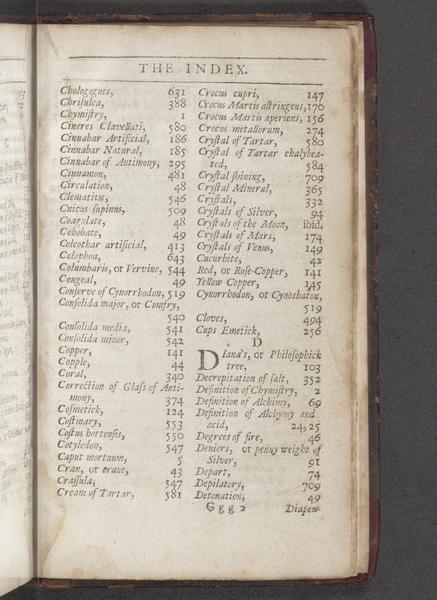 THE INDEX.
Chologogues, 631
Chrisulca, 388
Chymistry, 1
Cineres Clavellati, 580
Cinnabar Artificial, 186
Cinnabar Natural, 185
Cinnabar of Antimony, 295
Cinnamon, 481
Circulation, 48
Clematitis, 546
Cnicus supinus, 509
Coagulate, 48
Cohobate, 49
Colcothar artificial, 413
Colophon, 643
Columbaris, or Vervine, 544
Congeal, 49
Conserve of Cynorrhodon, 519
Consolida major, or Comfry,
540
Consolida media, 541
Consolida minor, 542
Copper, 141
Copple, 44
Coral, 340
Correction of Glass of Anti-
mony, 374
Cosmetick, 124
Costmary, 553
Costus hortensis, 550
Cotyledon, 547
Caput mortuum, 5
Cran, or crane, 43
Crassula, 547
Cream of Tartar, 581
Crocus cupri, 147
Crocus Martis astringens, 170
Crocus Martis aperiens, 156
Crocus metallorum, 274
Crystal of Tartar, 580
Crystal of Tartar chalybea-
ted, 584
Crystal shining, 709
Crystal Mineral, 365
Crystals, 332
Crystals of Silver, 94
Crystals of the Moon, ibid.
Crystals of Mars, 174
Crystals of Venus, 149
Cucurbite, 42
Red, or Rose-Copper, 141
Yellow Copper, 145
Cynorrhodon, or Cynosbaton,
519
Cloves, 494
Cups Emetick, 256
D
Diana's, or Philosophick
tree, 103
Decrepitation of salt, 352
Definition of Chymistry, 2
Definition of Alchimy, 69
Definition of Alchymy and
acid, 24, 25
Degrees of fire, 46
Deniers, or penny weight of
Silver, 91
Depart, 74
Depilatory, 709
Detonation, 49
Ggg 2 Diapen-